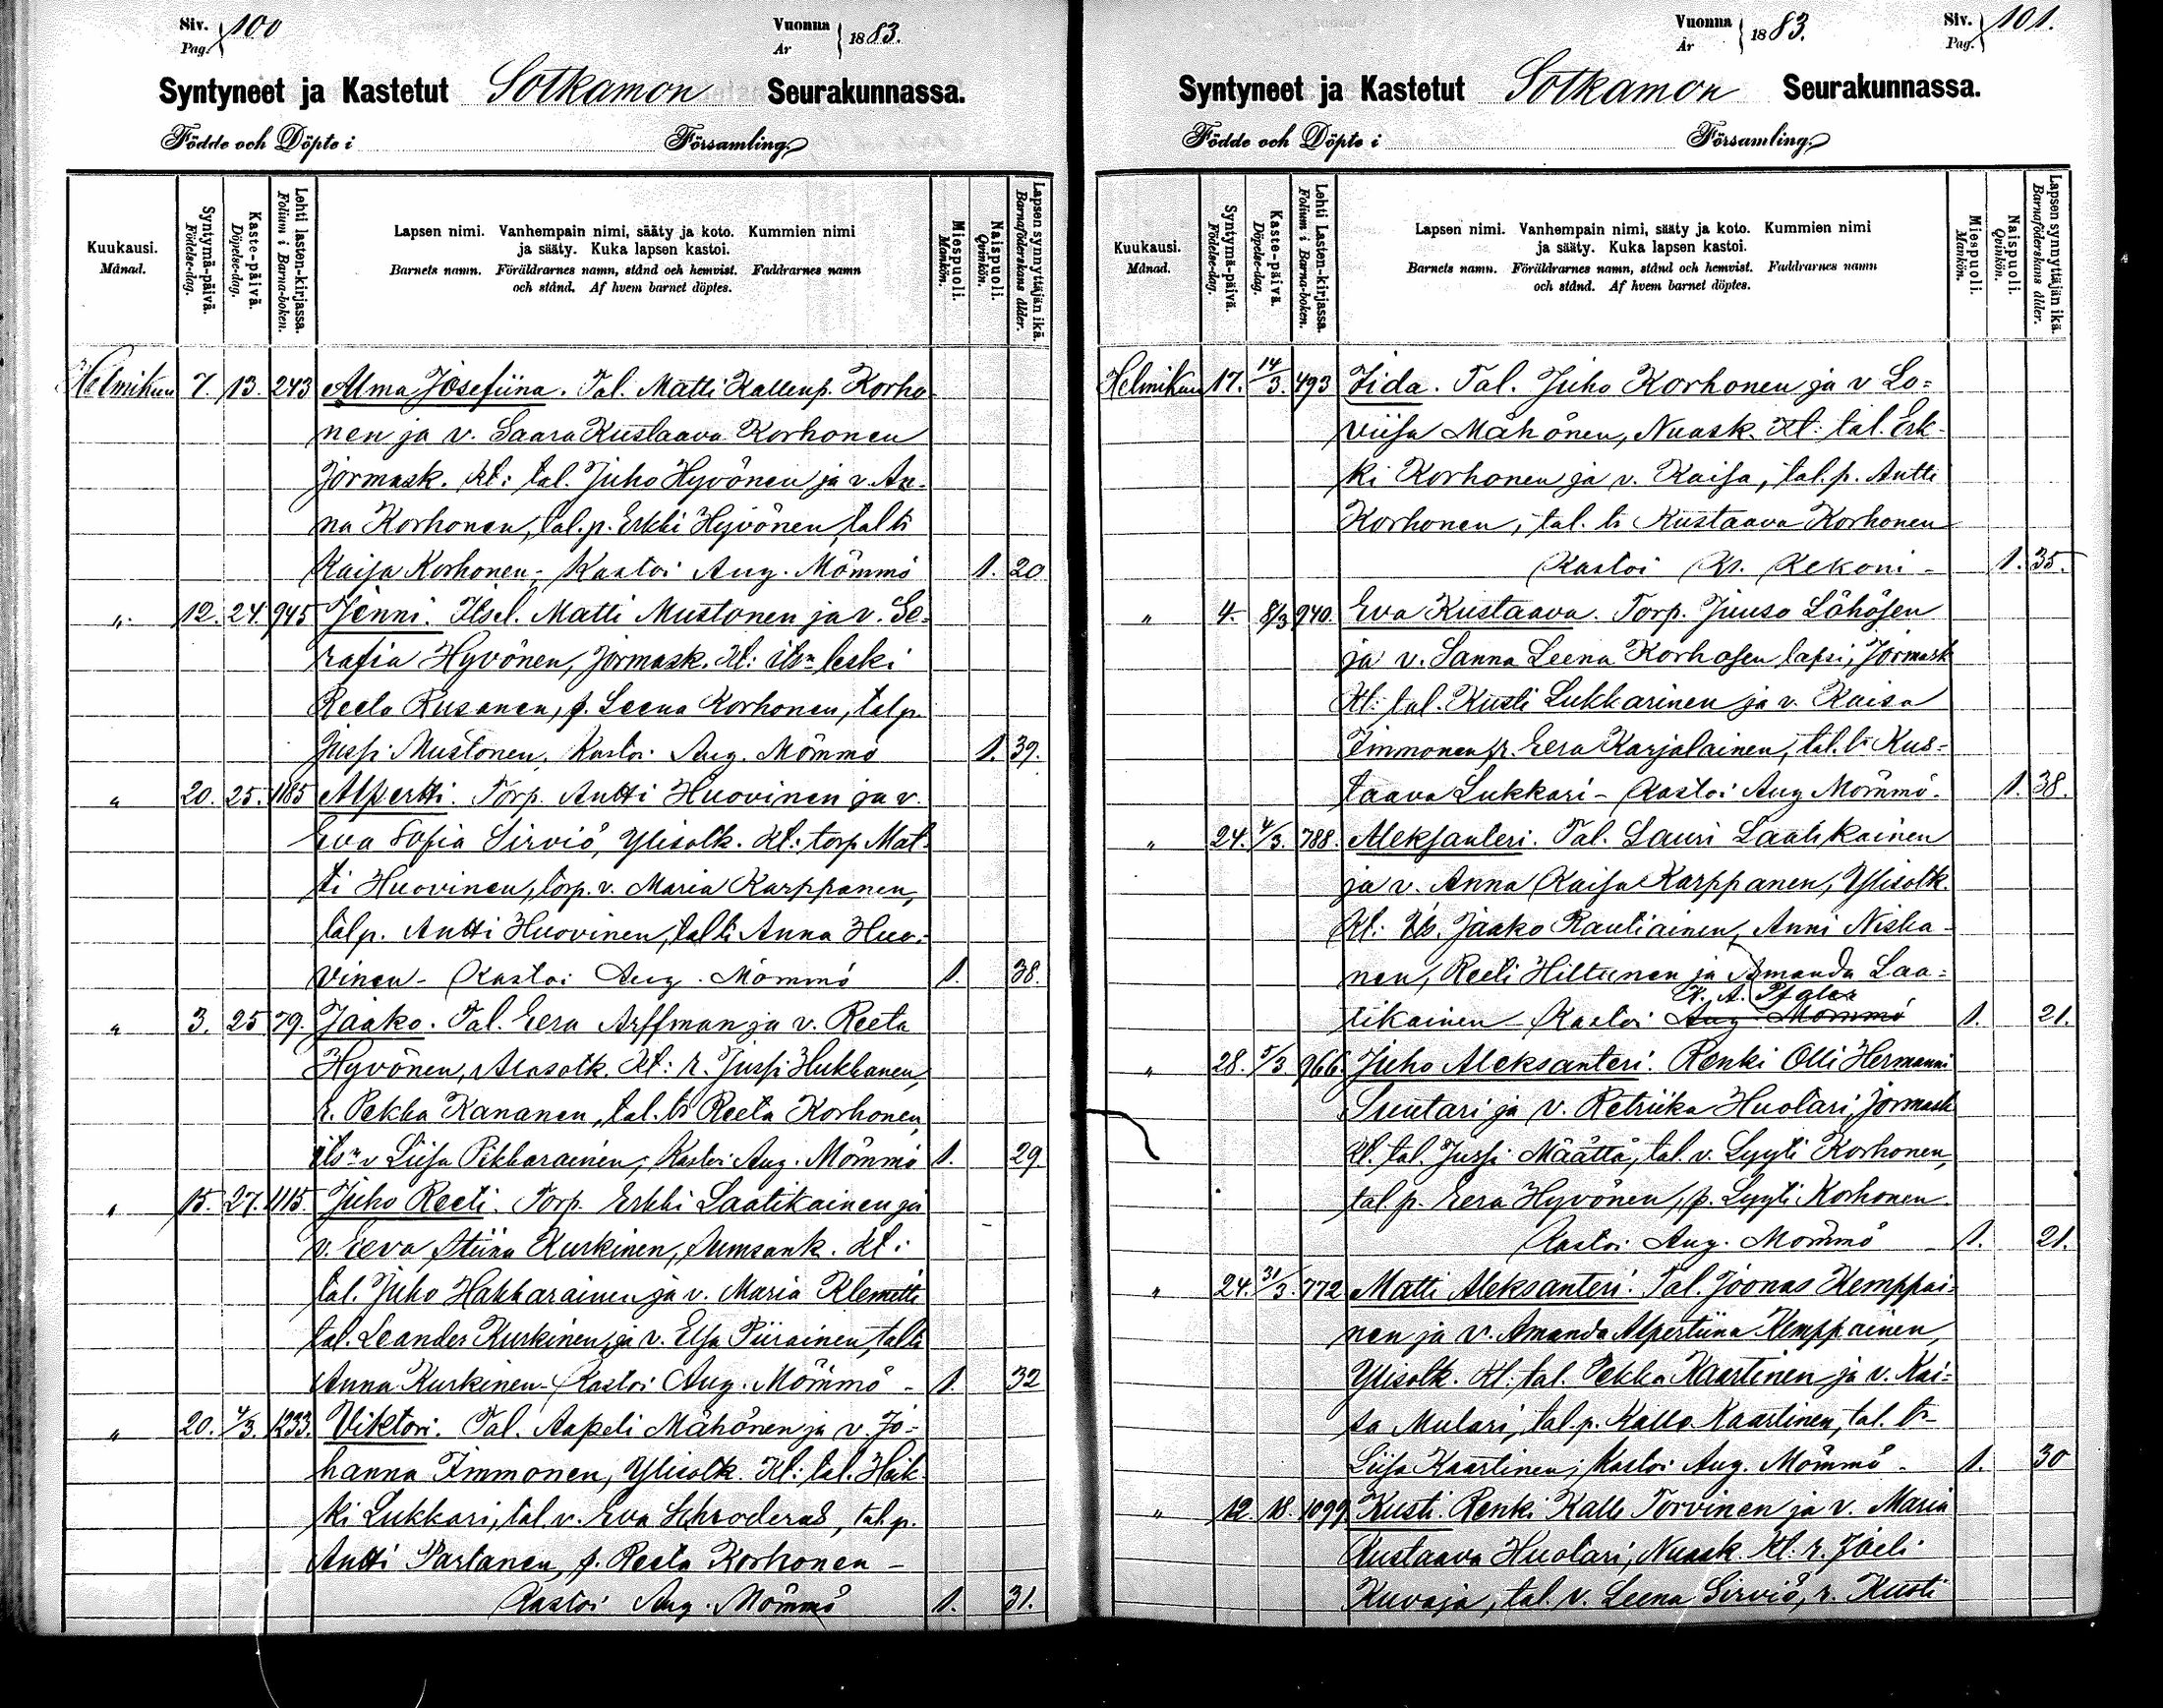 Siv. Pag. } 100
Vuonna År } 1883.
Syntyneet ja Kastetut Sotkamon Seurakunnassa.
Födde och Döpte i Församling.
Kuukausi. Månad.
Syntymä-päivä. Födelse-dag.
Kaste-päivä. Döpelse-dag.
Lehti lasten-kirjassa. Folium i Barna-boken.
Lapsen nimi. Vanhempain nimi, sääty ja koto. Kummien nimi
ja sääty. Kuka lapsen kastoi.
Barnets namn. Föräldrarnes namn, stånd och hemvist. Faddrarnes namn
och stånd. Af hvem barnet döptes.
Miespuoli. Mankön.
Naispuoli. Qvinkön.
Lapsen synnyttäjän ikä. Barnaföderskans ålder.
Helmikuu 7. 13. 243 Alma Josefiina. Tal. Matti Kallenp. Korho
nen ja v. Saara Kustaava Korhonen
Jormask. Kt: tal. Juho Hyvönen ja v. An-
na Korhonen, tal. p. Erkki Hyvönen, tal tr
Kaisa Korhonen; Kastoi Aug. Mömmö 1. 20
" 12. 24. 945 Jenni. Itsel. Matti Mustonen ja v. Se-
rafia Hyvönen, Jormask. Kt: itsn leski
Reeta Rusanen, p. Leena Korhonen, tal p.
Jussi Mustonen. Kastoi Aug. Mömmö 1. 39.
" 20. 25. 1185 Alpertti. Torp. Antti Huovinen ja v.
Eva Sofia Sirviö, Ylisotk. Kt: torp Mat-
ti Huovinen, torp. v. Maria Karppanen,
tal p. Antti Huovinen, tal tr Anna Huo-
vinen - Kastoi Aug. Mömmö 1. 38.
" 3. 25 79. Jaako. Tal. Eera Arffman ja v. Reeta
Hyvönen, Alasotk. Kt: r. Jussi Hukkanen,
r. Pekka Kananen, tal. tr Reeta Korhonen,
itsn v Liisa Pikkarainen; Kastoi Aug. Mömmö 1. 29.
" 15. 27. 1115. Juho Reeti. Torp. Erkki Laatikainen ja
v. Eeva Stiina Kurkinen, Sumsank. Kt:
tal. Juho Hakkarainen ja v. Maria Klemetti
tal. Leander Kurkinen ja v. Elsa Piirainen, tal tr
Anna Kurkinen - Kastoi Aug. Mömmö - 1. 32
" 20. 4/3. 1233. Viktori. Tal. Aapeli Mähönen ja v. Jo-
hanna Immonen, Ylisotk. Kt: tal. Heik-
ki Lukkari, tal. v. Eva Schroderus, tal. p.
Antti Partanen, p. Reeta Korhonen -
Kastoi Aug. Mömmö 1. 31.
Vuonna År } 1883.
Siv. Pag. } 101.
Syntyneet ja Kastetut Sotkamon Seurakunnassa.
Födde och Döpte i Församling.
Kuukausi. Månad.
Syntymä-päivä. Födelse-dag.
Kaste-päivä. Döpelse-dag.
Lehti Lasten-kirjassa. Folium i Barna-boken.
Lapsen nimi. Vanhempain nimi, sääty ja koto. Kummien nimi
ja sääty. Kuka lapsen kastoi.
Barnets namn. Föräldrarnes namn, stånd och hemvist. Faddrarnes namn
och stånd. Af hvem barnet döptes.
Miespuoli. Mankön.
Naispuoli. Qvinkön.
Lapsen synnyttäjän ikä. Barnaföderskans ålder.
Helmikuu 17. 14/3. 493 Iida. Tal. Juho Korhonen ja v Lo-
viisa Mähönen, Nuask. Kt: tal. Erk-
ki Korhonen ja v. Kaisa, tal. p. Antti
Korhonen, tal. tr Kustaava Korhonen
Kastoi Kr. Kekoni - 1. 35.
" 4. 8/3 940. Eva Kustaava. Torp. Juuso Löhösen
ja v. Sanna Leena Korhosen lapsi, Jormask
Kt: tal. Kusti Lukkarinen ja v. Kaisa
Immonen, r. Eera Karjalainen, tal. tr Kus-
taava Lukkari - Kastoi Aug Mömmö. 1. 38.
" 24. 4/3. 788. Aleksanteri. Tal. Lauri Laatikainen
ja v. Anna Kaisa Karppanen, Ylisotk.
Kt: its. Jaako Rautiainen, Anni Niska-
nen, Reeti Hiltunen ja Amanda Laa-
K. A. Pfaler
tikainen - Kastoi Aug Mömmö 1. 21.
" 28. 5/3. 966. Juho Aleksanteri. Renki Olli Hermanni
Suutari ja v. Retriika Huotari, Jormask
Kt. tal. Jussi Määttä, tal. v. Lyyti Korhonen,
tal. p. Eera Hyvönen, p. Lyyti Korhonen.
Kastoi Aug. Mömmö - 1. 21.
" 24. 31/3. 772 Matti Aleksanteri. Tal. Joonas Kemppai-
nen ja v. Amanda Alpertiina Kemppainen,
Ylisotk. Kt: tal. Pekka Kaartinen ja v. Kai-
sa Mulari, tal. p. Kalle Kaartinen, tal. tr
Liisa Kaartinen; Kastoi Aug. Mömmö - 1. 30
" 12. 18. 1099. Kusti. Renki Kalle Torvinen ja v. Maria
Kustaava Huotari, Nuask. Kt: r. Joeli
Kuvaja, tal. v. Leena Sirviö, r. Kusti